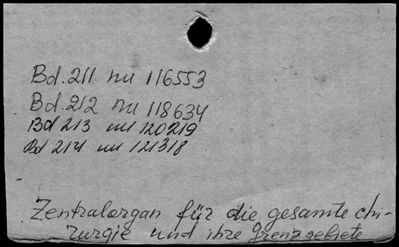 Bd. 211 nu 116553
Bd. 212 nu 118634
Bd 213 nu 120219
Bd 214 nu 121318
Zentralorgan für die gesamte chi-
rurgie und ihre Grenzgebiete